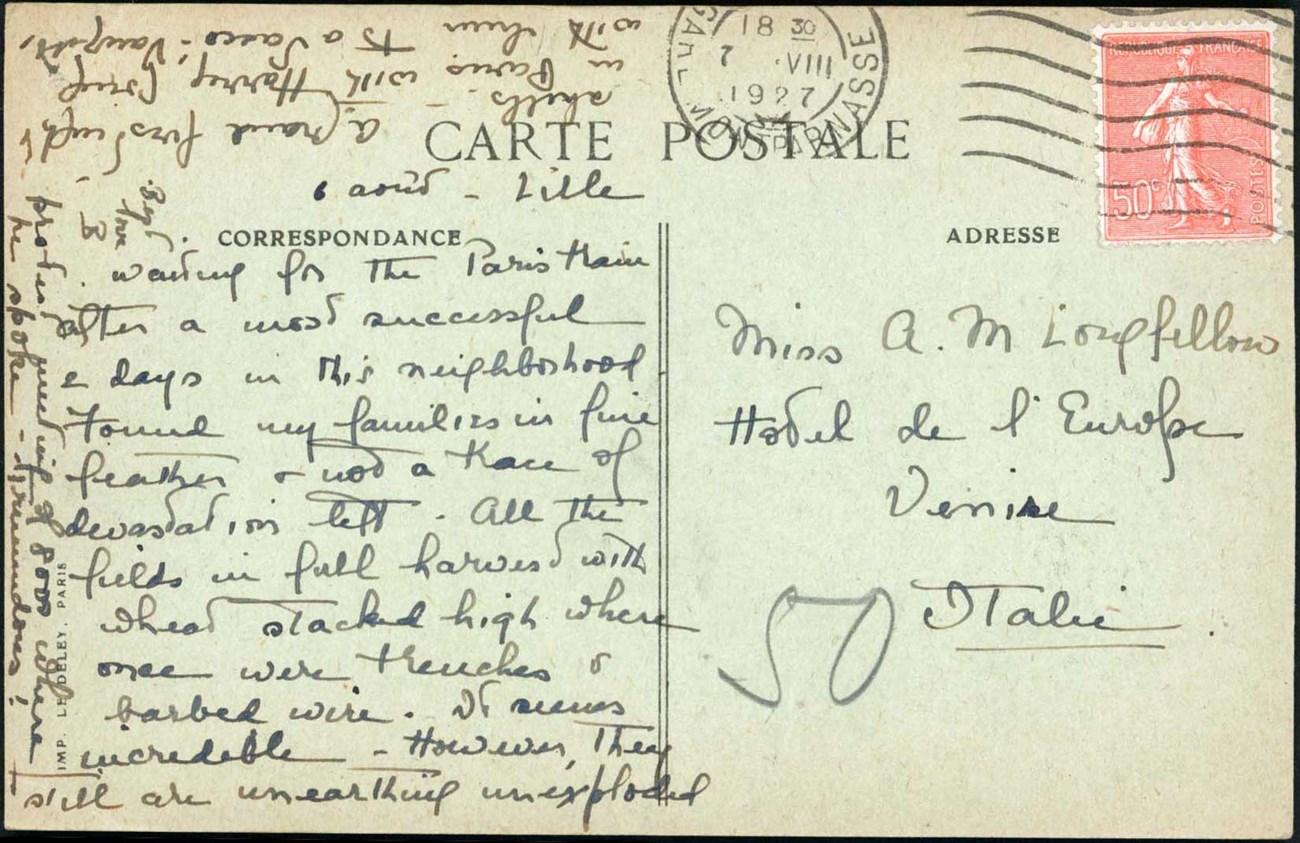 CARTE POSTALE
6 août - Lille
CORRESPONDANCE
waiting for the Paris train
after a most successful
2 days in this neighborhood
Found my families in fine
feather & not a trace of
devastation left. All the
fields in full harvest with
wheat stacked high where
once were trenches &
barbed wire. It seems
incredible - However, they
still are unearthing unexploded
shells. - A grand first night
in Paris with Harry
with him to a Sacco-Vanzetti
protest meeting of 8000 where
he spoke - Tremendous!
Love
B
IMP. LEDELEY, PARIS
18 30
7 VIII
1927
GARE MONTPARNASSE
REPUBLIQUE FRANÇAISE
50c
POSTES
ADRESSE
Miss A. M Longfellow
Hotel de l'Europe
Venise
Italie
50